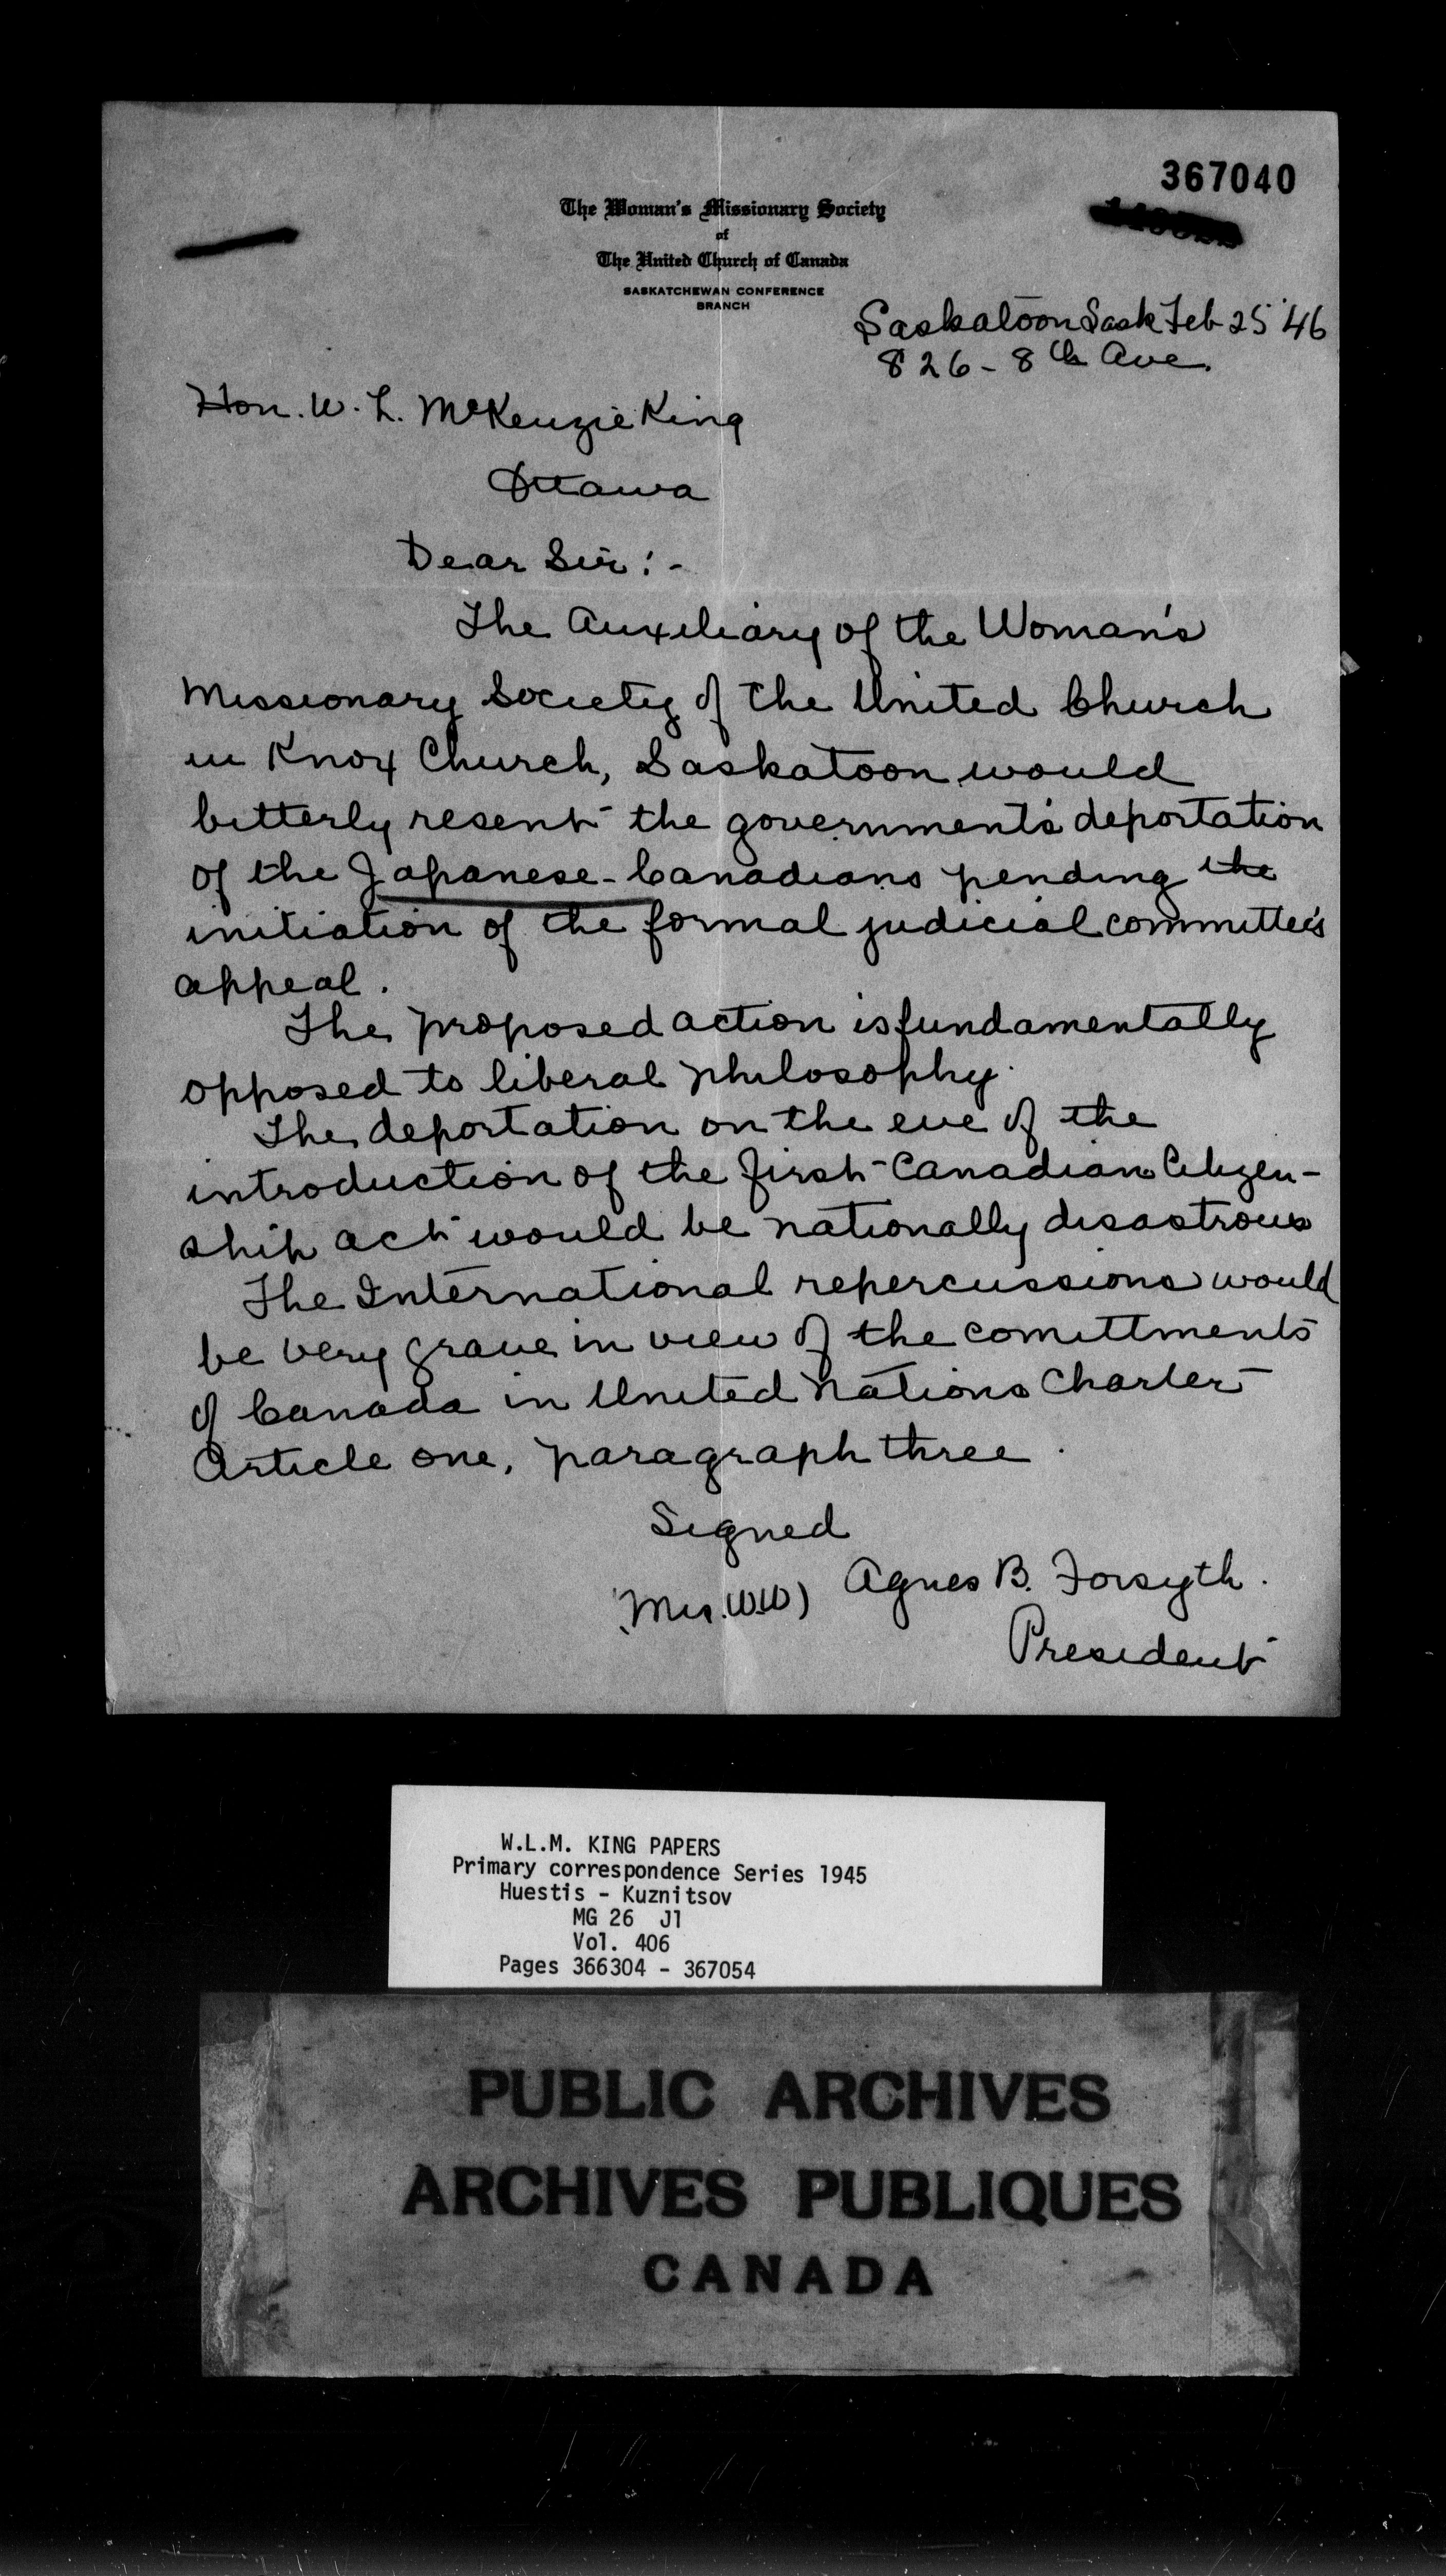 367040
The Woman's Missionary Society
of
The United Church of Canada
SASKATCHEWAN CONFERENCE
BRANCH
Saskatoon Sask Feb 25 '46
826 - 8th Ave.
Hon. W. L. McKenzie King
Ottawa
Dear Sir: -
The Auxiliary of the Woman's
Missionary Society of the United Church
in Knox Church, Saskatoon would
bitterly resent the government's deportation
of the Japanese-Canadians pending the
initiation of the formal judicial committee's
appeal.
The proposed action is fundamentally
opposed to liberal philosophy.
The deportation on the eve of the
introduction of the first Canadian Citizen-
ship act would be nationally disastrous
The International repercussions would
be very grave in view of the comittments
of Canada in United Nations Charter
Article one, paragraph three.
Signed
(Mrs. W.W) Agnes B. Forsyth.
President
W.L.M. KING PAPERS
Primary correspondence Series 1945
Huestis - Kuznitsov
MG 26 J1
Vol. 406
Pages 366304 - 367054
PUBLIC ARCHIVES
ARCHIVES PUBLIQUES
CANADA